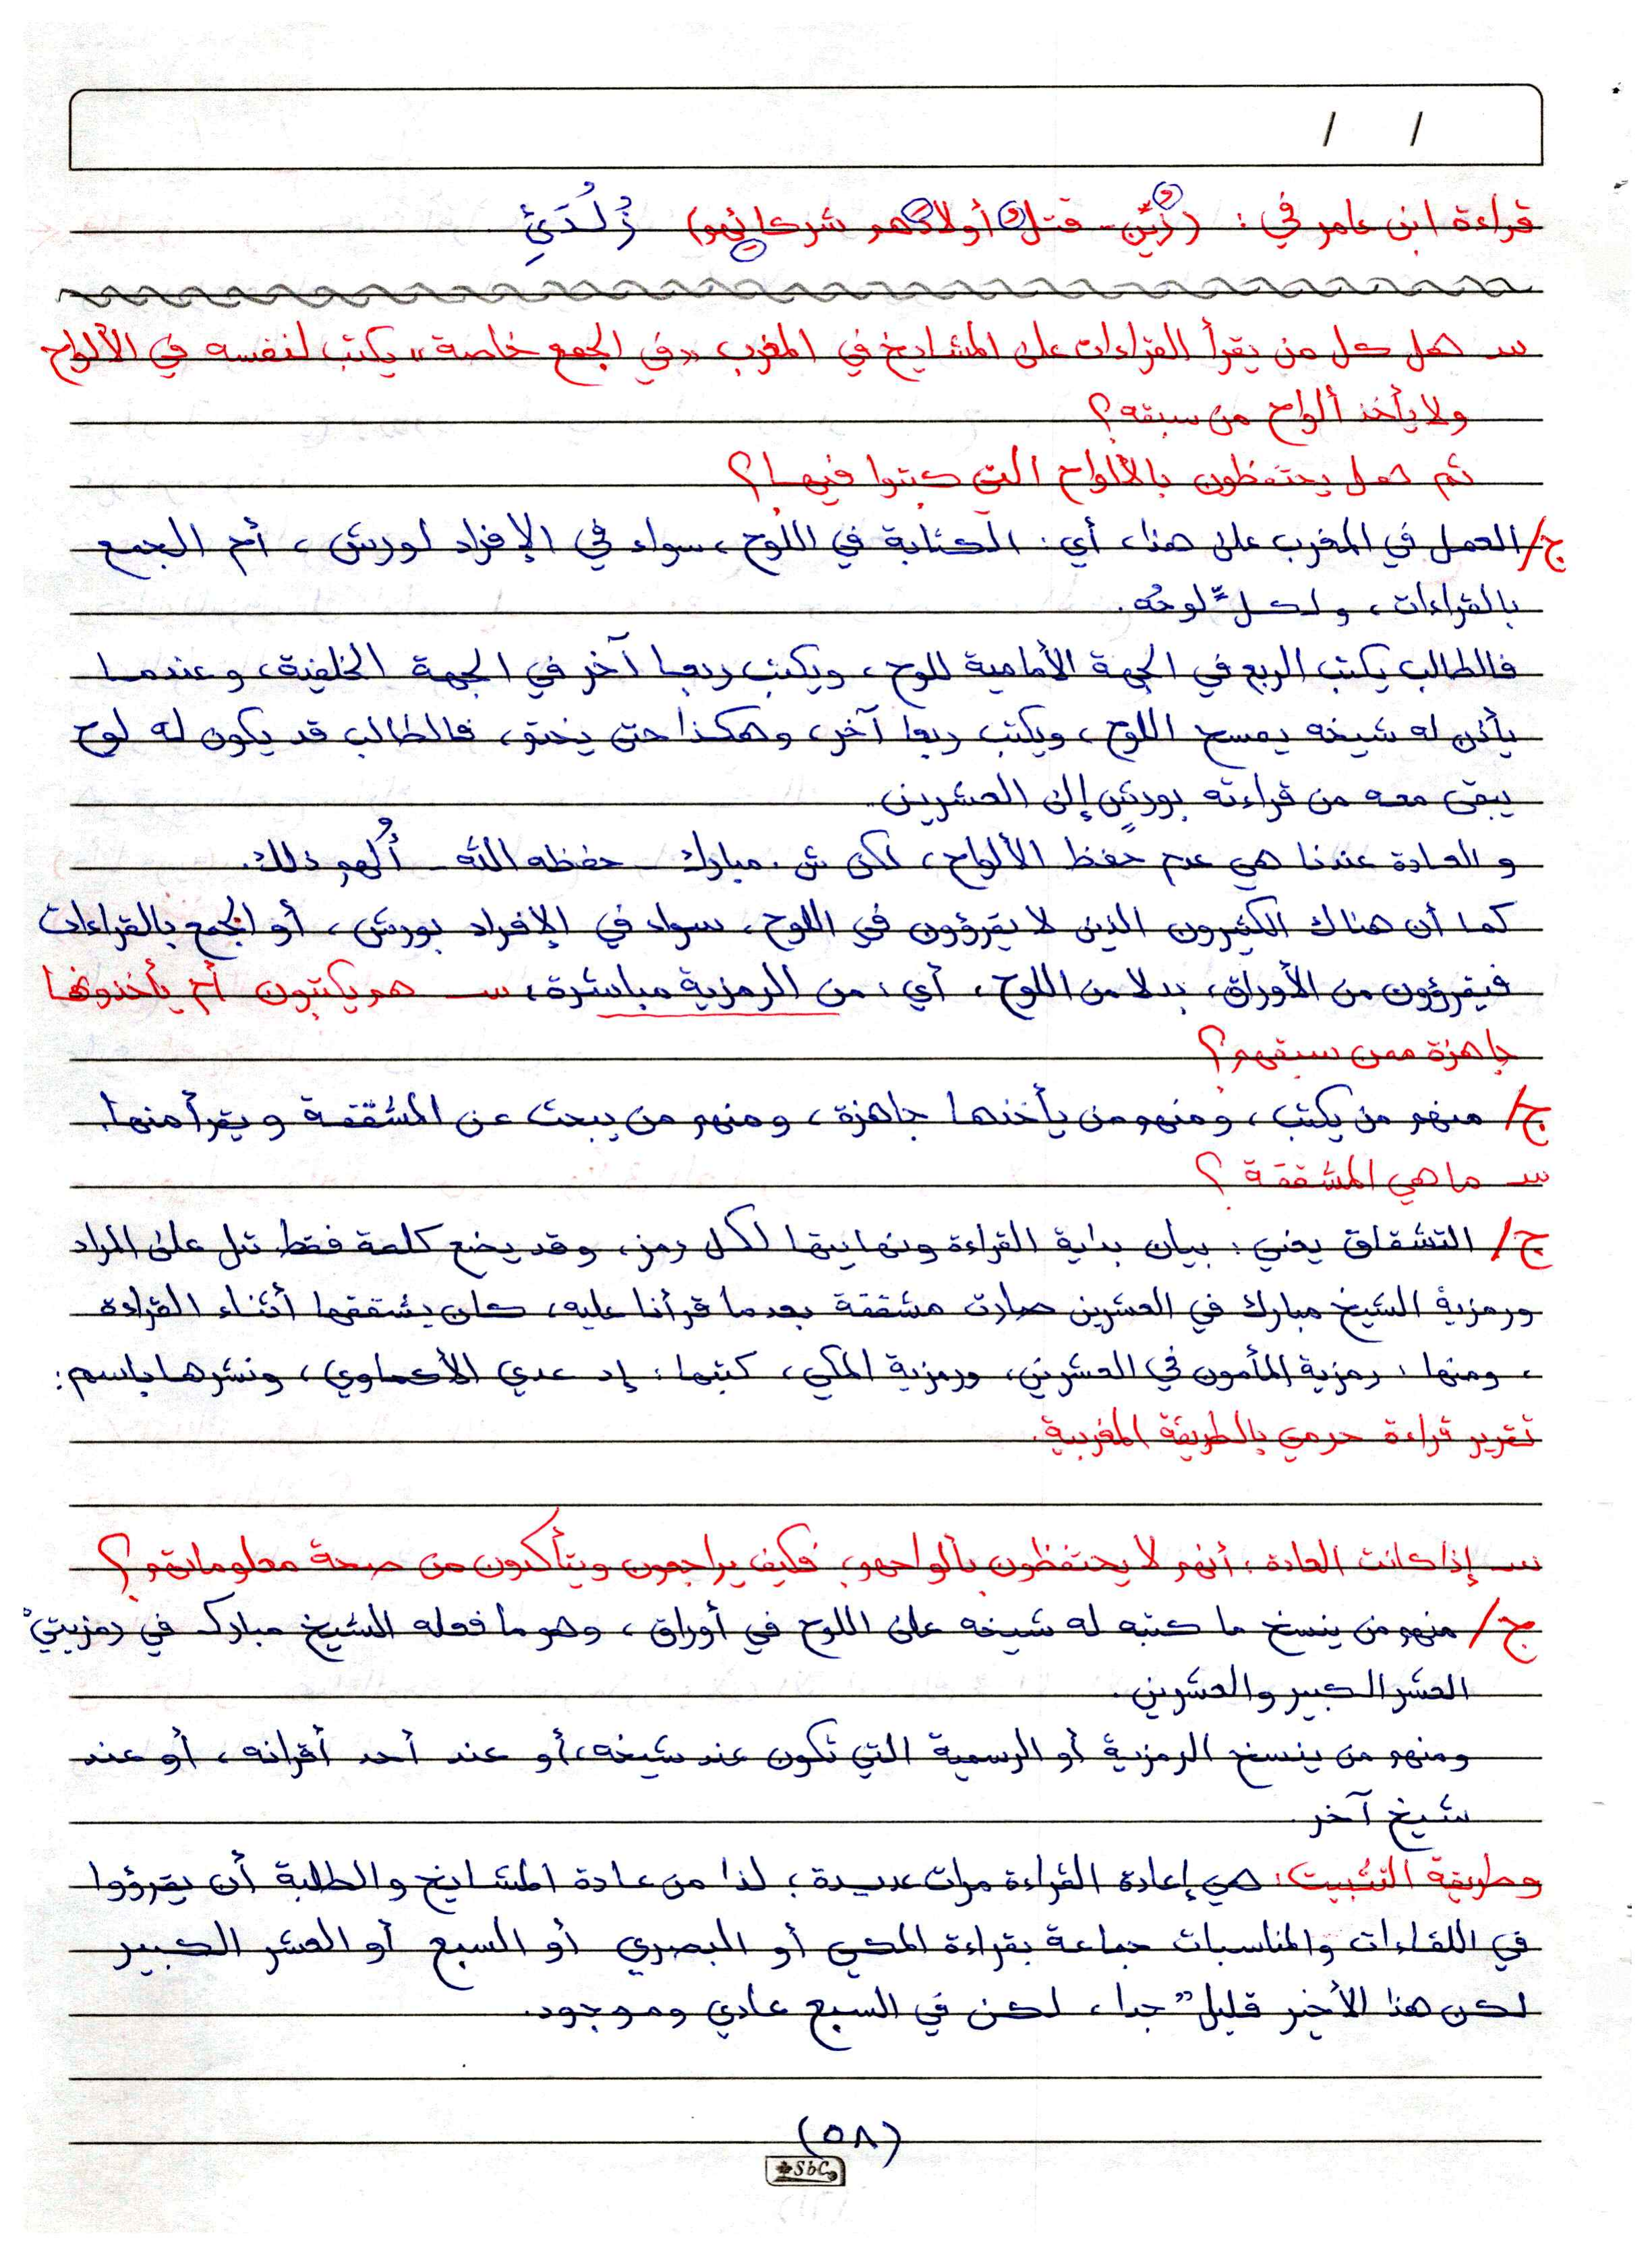 / /
قراءة ابن عامر في: (زُيِّن - قتلُ أولادَهم شركائِهم) زُلُدَئِ
س هل كل من يقرأ القراءات على المشايخ في المغرب «في الجمع خاصة» يكتب لنفسه في الألواح
ولا يأخذ ألواح من سبقه؟
ثم هل يحتفظون بالألواح التي كتبوا فيها؟
ج/ العمل في المغرب على هذا، أي: الكتابة في اللوح، سواء في الإفراد لورش، أم الجمع
بالقراءات، ولكلٍّ لوحُه.
فالطالب يكتب الربع في الجهة الأمامية للوح، ويكتب ربعا آخر في الجهة الخلفية، وعندما
يأذن له شيخه يمسح اللوح، ويكتب ربعا آخر، وهكذا حتى يختم، فالطالب قد يكون له لوح
يبقى معه من قراءته بورشٍ إلى العشرين.
والعادة عندنا هي عدم حفظ الألواح، لكن ش. مبارك - حفظه الله - أُلهم ذلك.
كما أن هناك الكثيرون الذين لا يقرؤون في اللوح، سواء في الإفراد بورش، أو الجمع بالقراءات
فيقرؤون من الأوراق، بدلا من اللوح، أي: من الرمزية مباشرة، س هم يكتبون أم يأخذونها
جاهزة ممن سبقهم؟
ج/ منهم من يكتب، ومنهم من يأخذها جاهزة، ومنهم من يبحث عن المشقّقة ويقرأ منها.
س ما هي المشققة؟
ج/ التشقاق يعني: بيان بداية القراءة ونهايتها لكل رمز، وقد يضع كلمة فقط تدل على المراد
ورمزية الشيخ مبارك في العشرين صارت مشققة بعدما قرأنا عليه، كان يشققها أثناء القراءة
، ومنها: رمزية المأمون في العشرين، ورمزية المكي، كتبها: إد عدي الأكماوي، ونشرها باسم:
تقرير قراءة حرمي بالطريقة المغربية.
س إذا كانت العادة: أنهم لا يحتفظون بألواحهم، فكيف يراجعون ويتأكدون من صحة معلوماتهم؟
ج/ منهم من ينسخ ما كتبه له شيخه على اللوح في أوراق، وهو ما فعله الشيخ مبارك في رمزيتيْ
العشر الكبير والعشرين.
ومنهم من ينسخ الرمزية أو الرسمية التي تكون عند شيخه، أو عند أحد أقرانه، أو عند
شيخ آخر.
وطريقة التثبيت: هي إعادة القراءة مرات عديدة، لذا من عادة المشايخ والطلبة أن يقرؤوا
في اللقاءات والمناسبات جماعة بقراءة المكي أو البصري أو السبع أو العشر الكبير
لكن هذا الأخير قليل جدا، لكن في السبع عادي وموجود.
(٥٨)
SbC